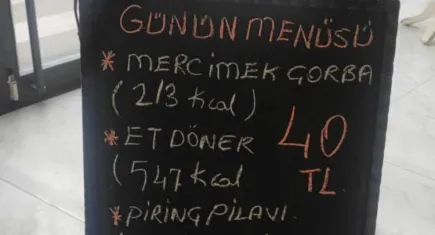 GÜNÜN MENÜSÜ
* MERCIMEK ÇORBA
(213 Kcal)
* ET DÖNER 40
(547 Kcal TL.
* PİRİNÇ PİLAVI.